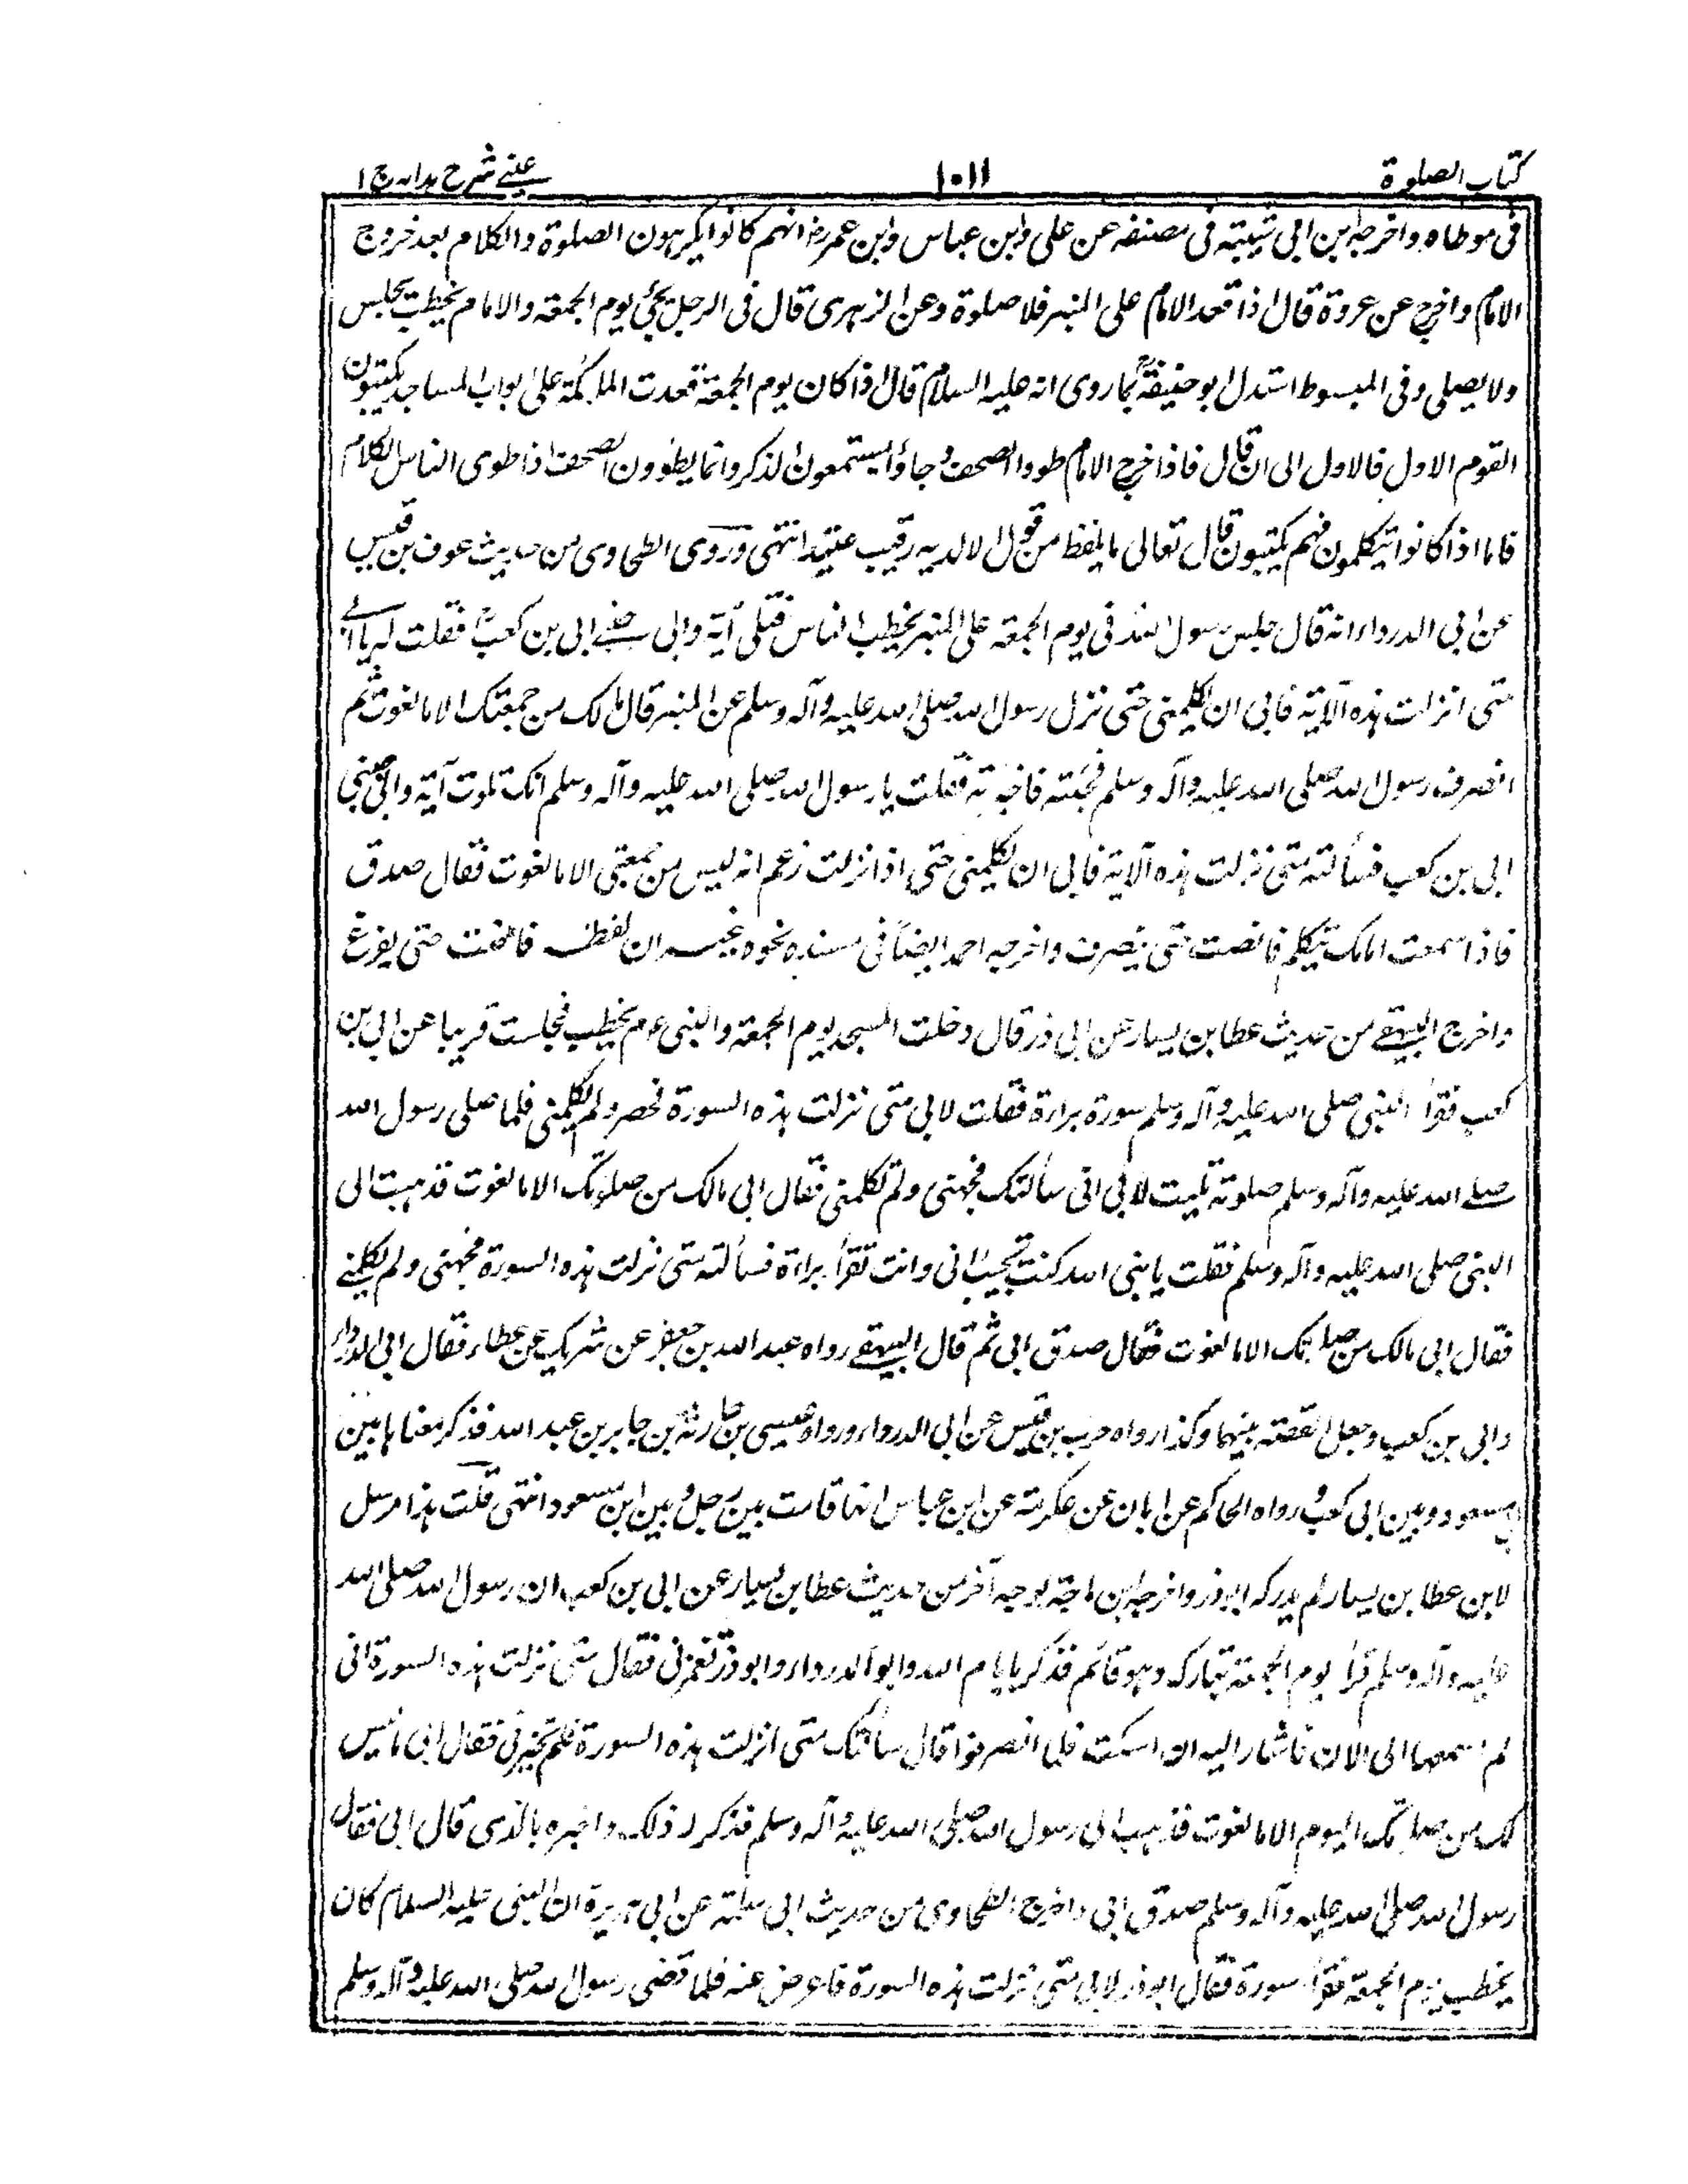 كتاب الصلوة ١٠١١ عيني شرح هدايه ج ١
في موطاه واخرجه ابن ابي شيبته في مصنفه عن علي وابن عباس وابن عمر رض انهم كانوا يكرهون الصلوة والكلام بعد خروج
الامام واخرج عن عروة قال اذا قعد الامام على المنبر فلا صلوة وعن الزهري قال في الرجل يجئ يوم الجمعة والامام يخطب يجلس
ولا يصلي وفي المبسوط استدل ابو حنيفة بما روي انه عليه السلام قال اذا كان يوم الجمعة قعدت الملائكة على ابواب المساجد يكتبون
القوم الاول فالاول الى ان قال فاذا خرج الامام طووا الصحف وجاؤا يستمعون الذكر وانما يطوون الصحف اذا طوى الناس الكلام
فاما اذا كانوا يتكلمون فهم يكتبون قال تعالى ما يلفظ من قول الا لديه رقيب عتيد انتهى وروى الطحاوي من حديث عوف بن قيس
عن ابي الدرداء انه قال جلس رسول الله في يوم الجمعة على المنبر يخطب الناس فتلى آية والى جنبي ابي بن كعب فقلت له يا ابي
متى انزلت هذه الآية فابى ان يكلمني حتى نزل رسول الله صلى الله عليه وآله وسلم عن المنبر قال مالك من جمعتك الا ما لغوت ثم
انصرف رسول الله صلى الله عليه وآله وسلم فجئته فاخبرته فقلت يا رسول الله صلى الله عليه وآله وسلم انك تلوت آية والى جنبي
ابي بن كعب فسألته متى نزلت هذه الآية فابى ان يكلمني حتى اذا نزلت زعم انه ليس من جمعتي الا ما لغوت فقال صدق
فاذا سمعت امامك يتكلم فانصت حتى ينصرف واخرجه احمد ايضاً في مسنده نحوه غير ان لفظه فانصت حتى يفرغ
واخرج البيهقي من حديث عطا بن يسار عن ابي ذر قال دخلت المسجد يوم الجمعة والنبي ءم يخطب فجلست قريبا عن ابي بن
كعب فقرأ النبي صلى الله عليه وآله وسلم سورة براءة فقلت لابي متى نزلت هذه السورة فحصر ولم يكلمني فلما صلى رسول الله
صلى الله عليه وآله وسلم صلوته قلت لابي اني سألتك فجهتني ولم تكلمني فقال ابي مالك من صلوتك الا ما لغوت فذهبت الى
النبي صلى الله عليه وآله وسلم فقلت يا نبي الله كنت بجنب ابي وانت تقرأ براءة فسألته متى نزلت هذه السورة فجهتني ولم يكلمني
فقال ابي مالك من صلوتك الا ما لغوت فقال صدق ابي ثم قال البيهقي رواه عبد الله بن جعفر عن شريك عن عطاء فقال ابي الدرداء
وابي بن كعب وجعل القصة بينهما وكذا رواه حرب بن قيس عن ابي الدرداء ورواه عيسى بن جارية بن جابر بن عبد الله فذكر معناها بين
ابن مسعود وبين ابي كعب ورواه الحاكم عن ابان عن عكرمة عن ابن عباس انها قامت بين رجل وبين ابن مسعود انتهى قلت هذا مرسل
لابن عطا بن يسار لم يدركه ابو ذر واخرجه ابن ماجة بوجه آخر من حديث عطا بن يسار عن ابي بن كعب ان رسول الله صلى الله
عليه وآله وسلم قرأ يوم الجمعة تبارك وهو قائم فذكر بايام الله وابو الدرداء وابو ذر تغمزني فقال متى نزلت هذه السورة اني
لم اسمعها الى الان فاشار اليه ان اسكت فلما انصرفوا قال سألتك متى انزلت هذه السورة فلم تخبرني فقال ابي ما ليس
لك من صلوتك اليوم الا ما لغوت فذهب الى رسول الله صلى الله عليه وآله وسلم فذكر له ذلك واخبره بالذي قال ابي فقال
رسول الله صلى الله عليه وآله وسلم صدق ابي واخرج الطحاوي من حديث ابي سلمة عن ابي هريرة ان النبي عليه السلام كان
يخطب يوم الجمعة فقرأ سورة فقال ابو ذر لابي متى نزلت هذه السورة فاعرض عنه فلما قضى رسول الله صلى الله عليه وآله وسلم